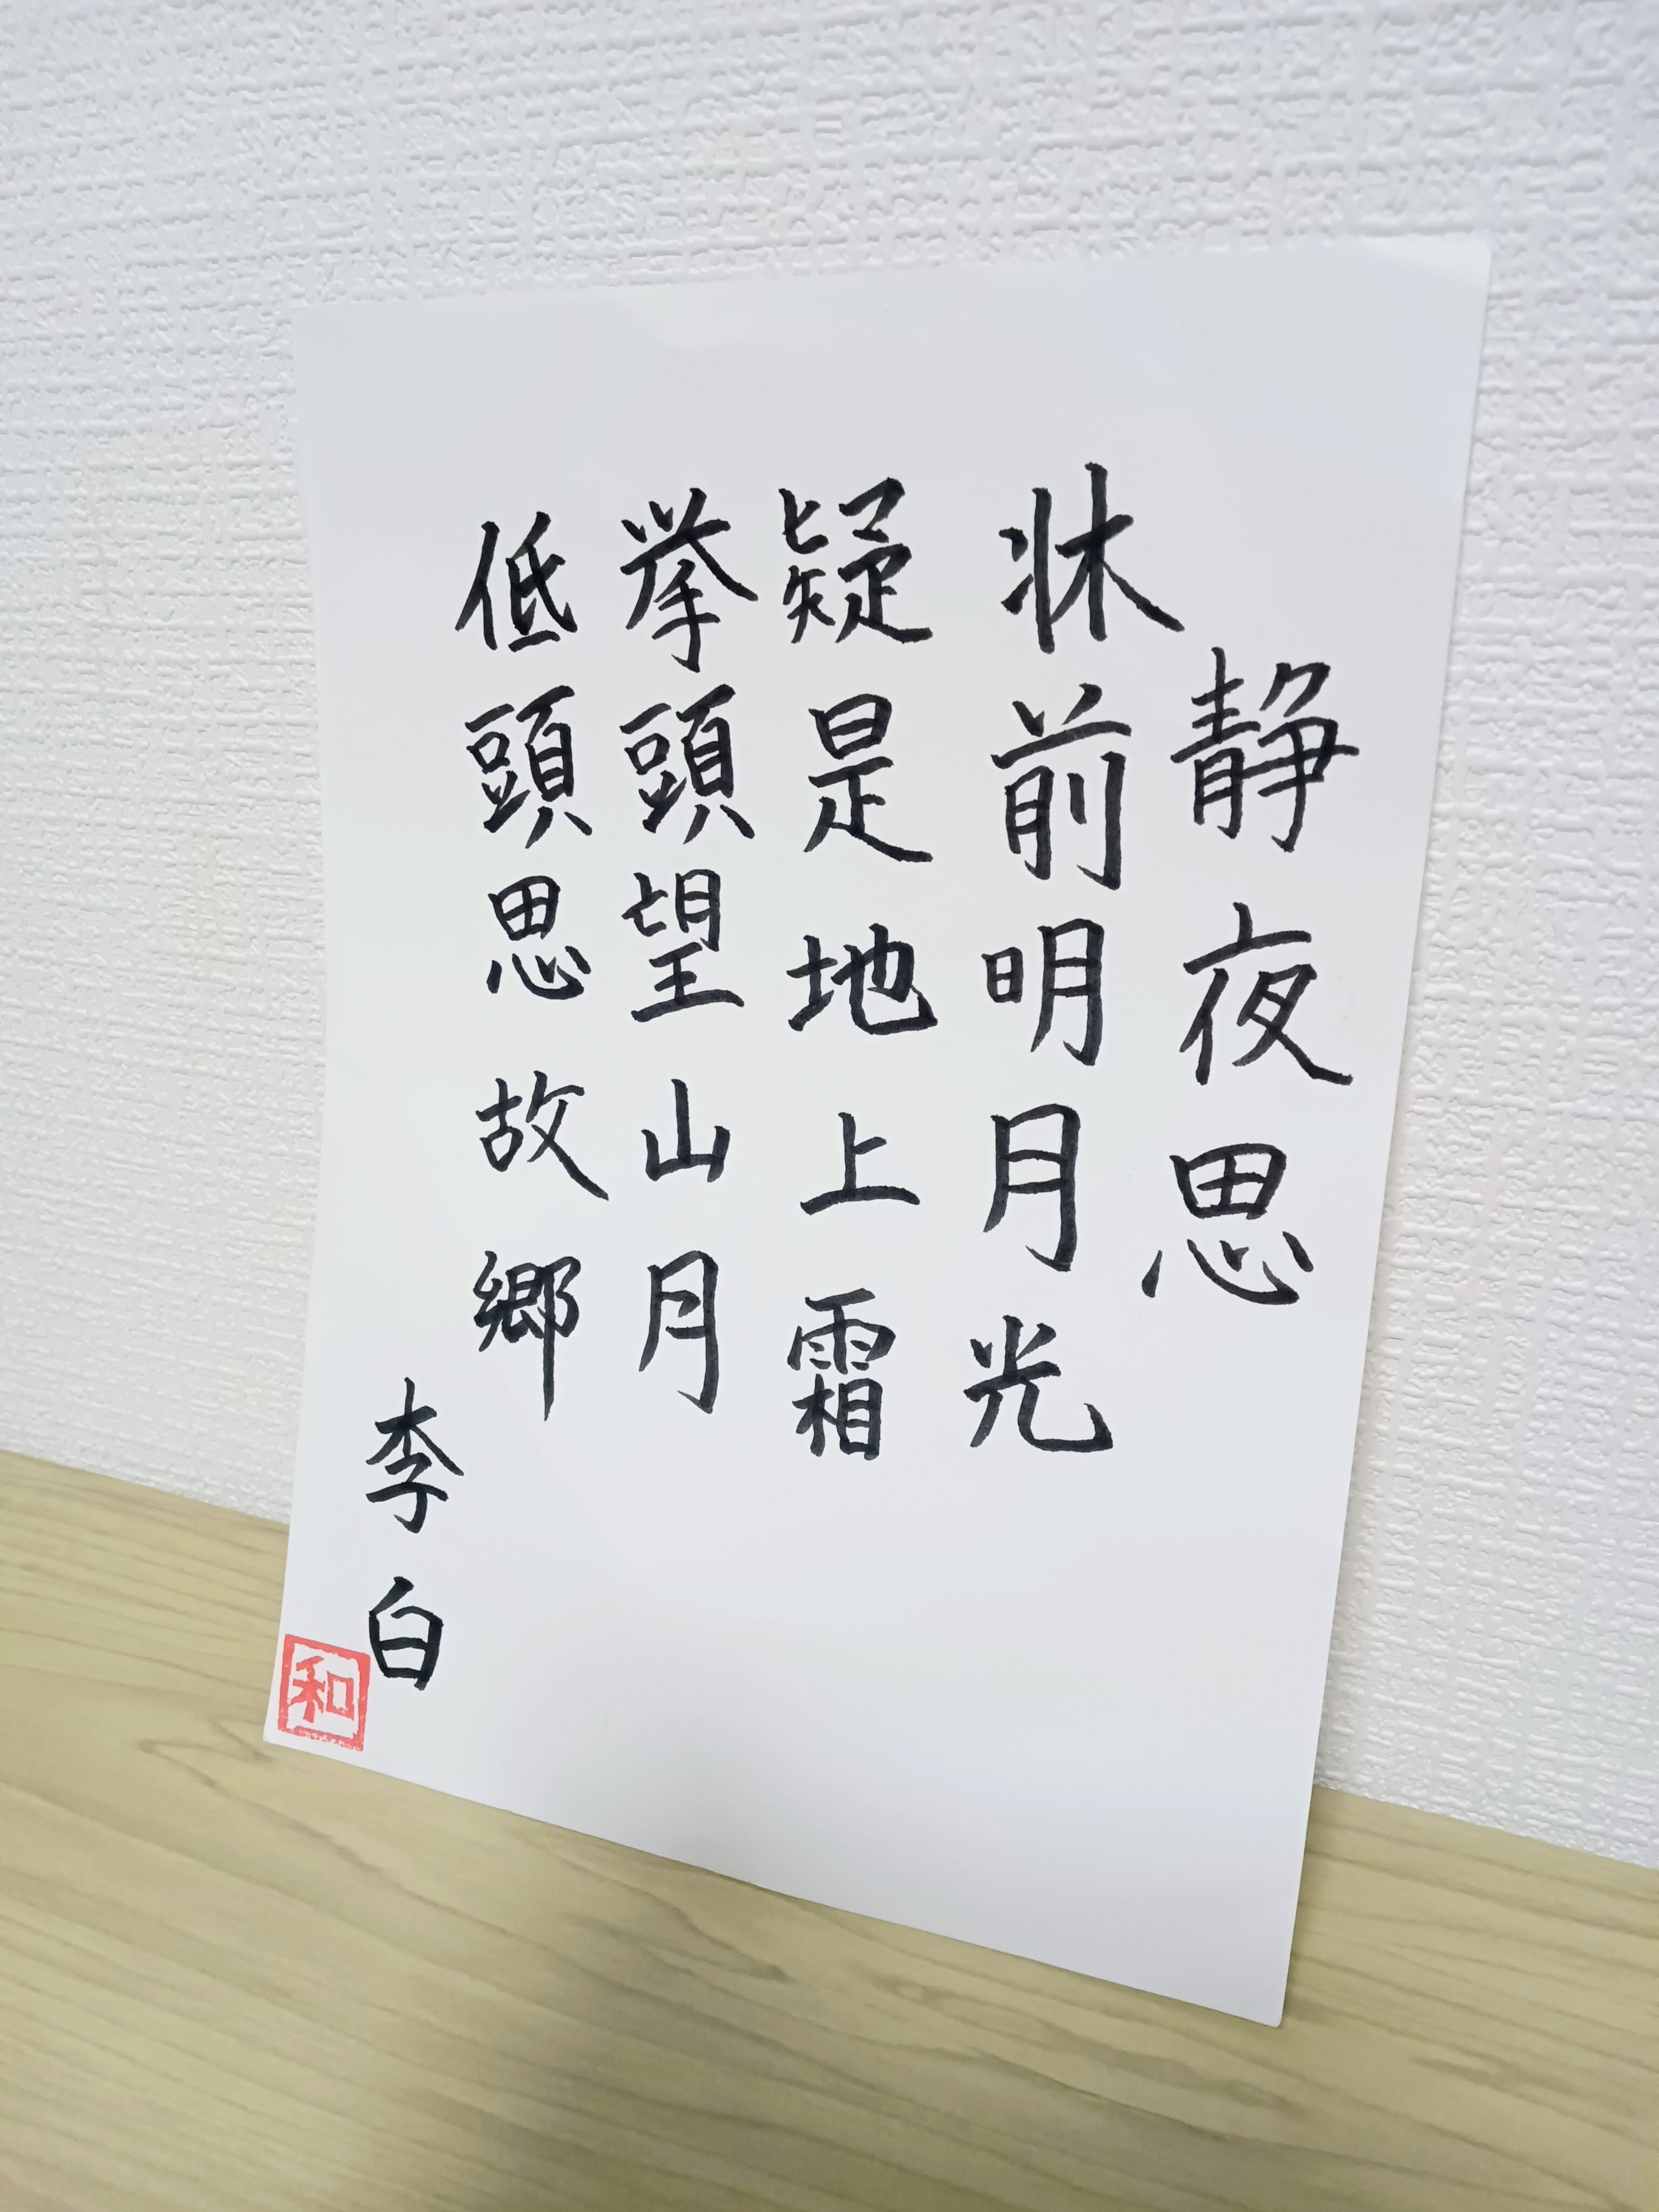 静夜思
牀前明月光
疑是地上霜
挙頭望山月
低頭思故郷
李白
和